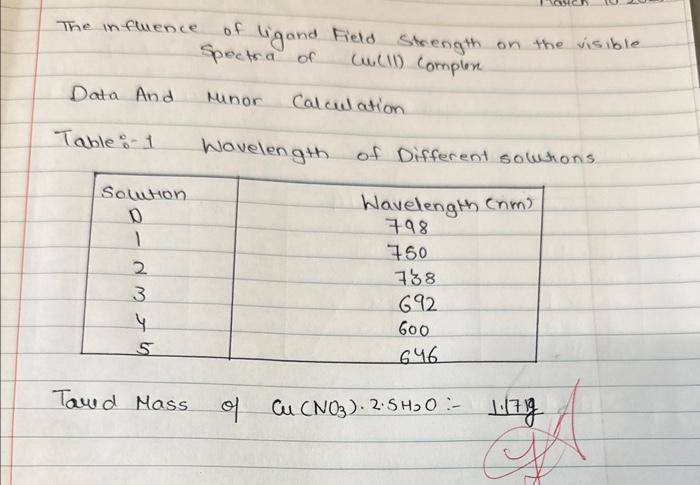 The influence of ligand Field Strength on the visible
Spectra of Cu(II) Complex
Data And Minor Calculation
Table:-1 Wavelength of Different solutions
Solution Wavelength (nm)
0 798
1 750
2 738
3 692
4 600
5 646
Tared Mass of Cu(NO3).2.5H2O :- 1.171g